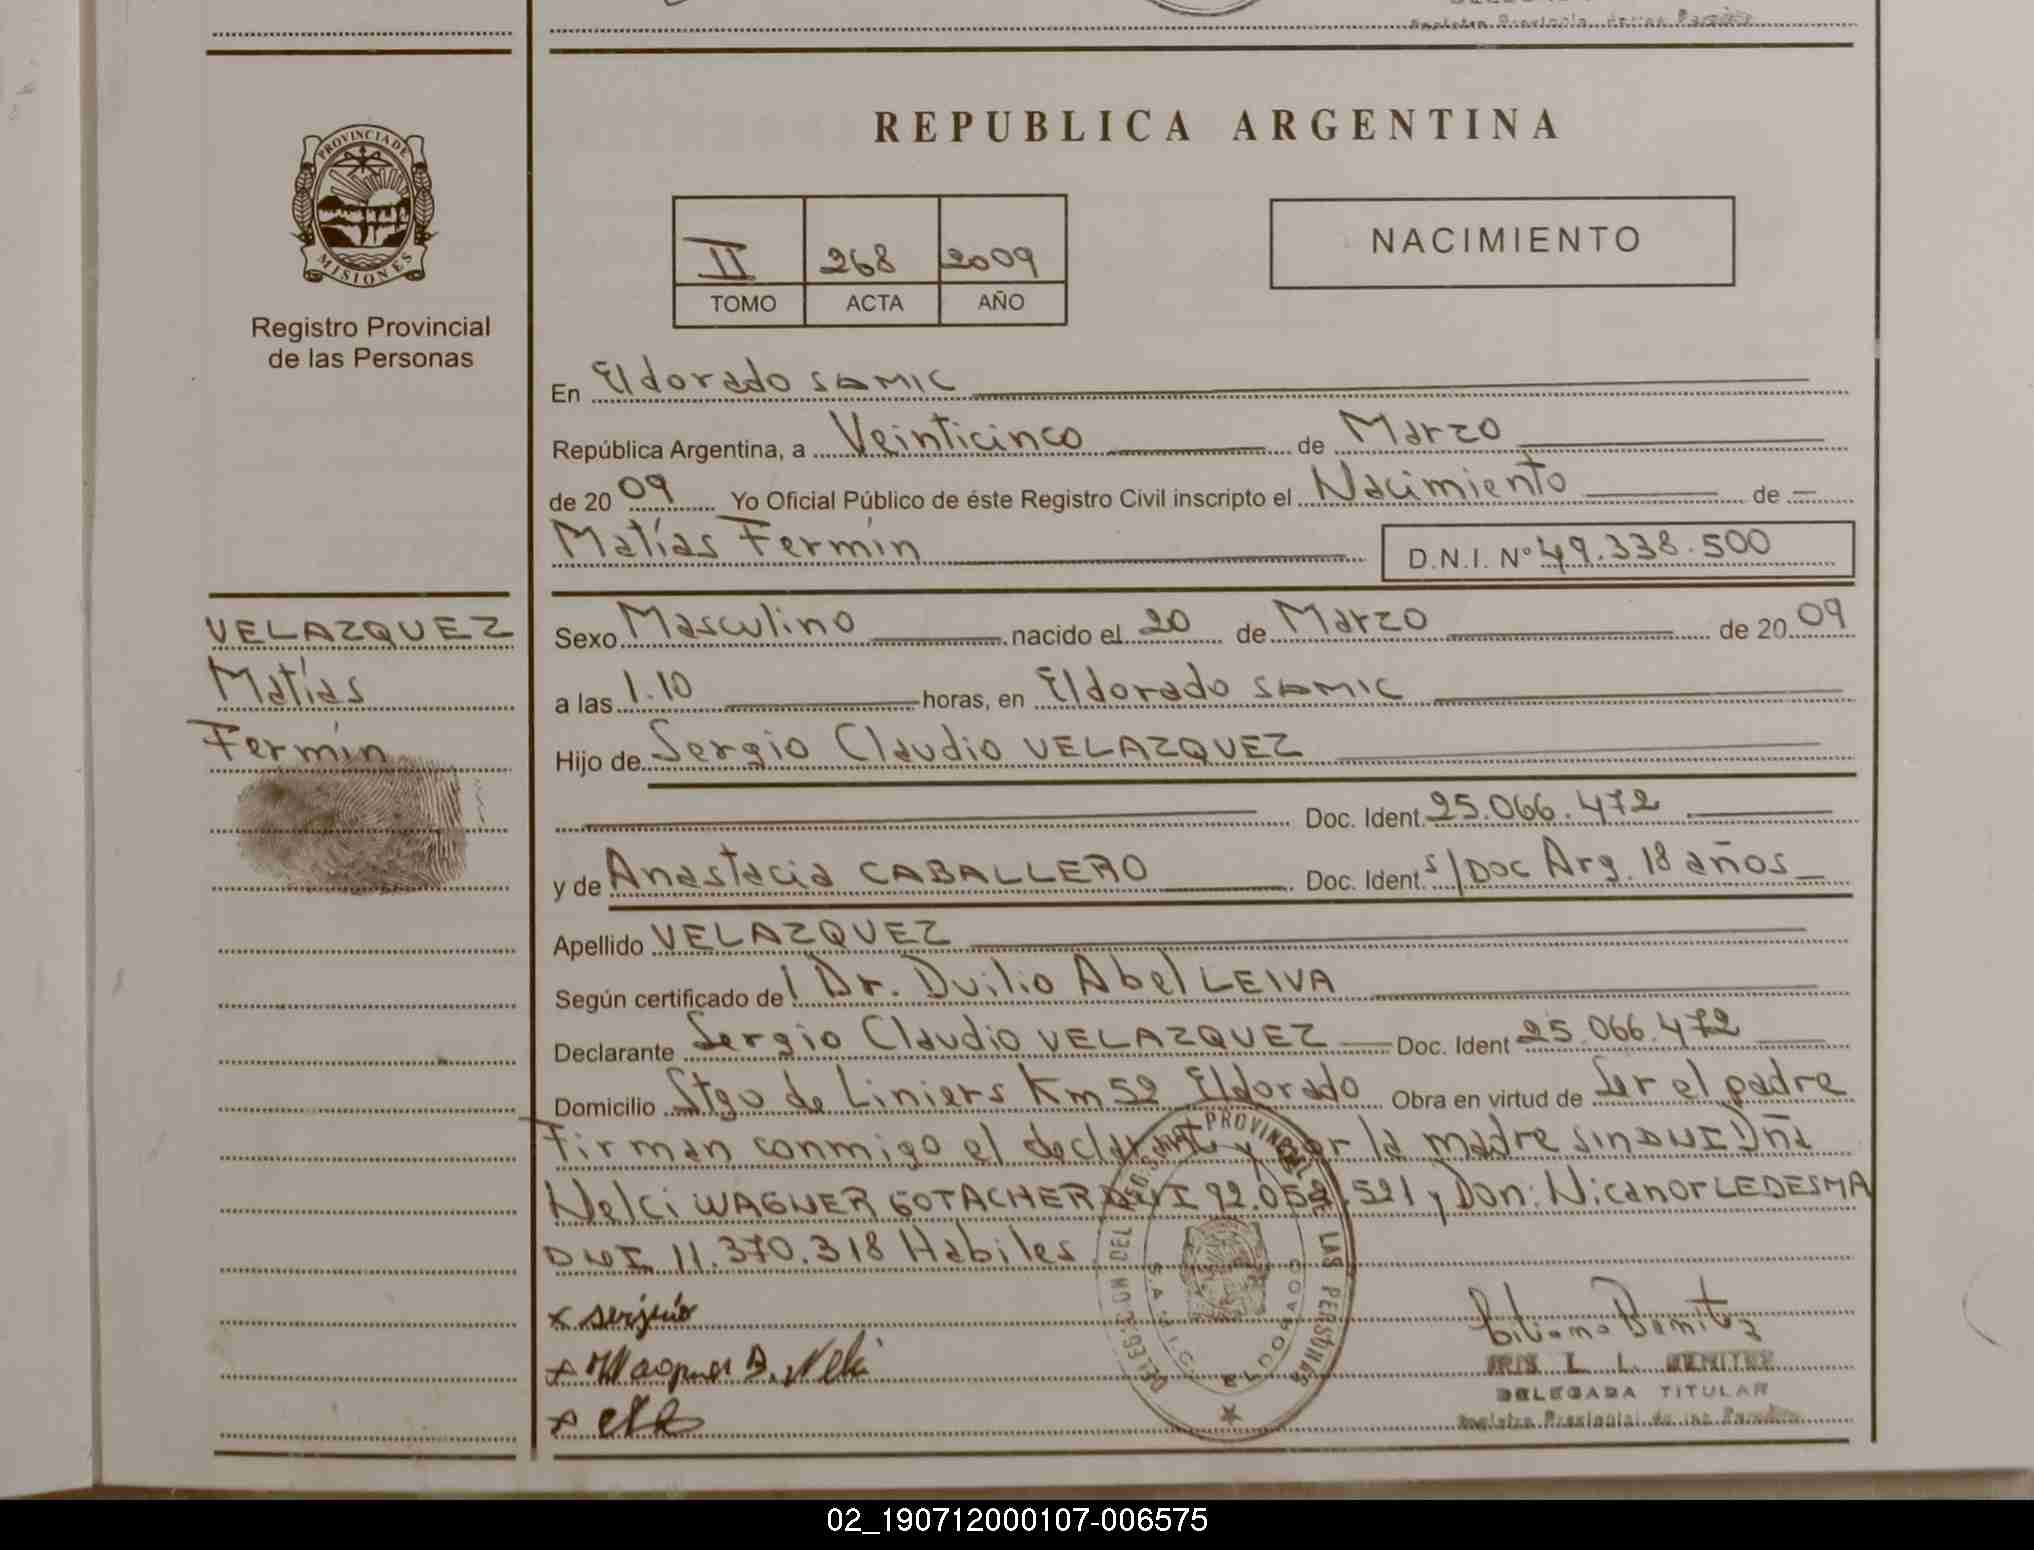 REPUBLICA ARGENTINA
PROVINCIA DE
MISIONES
Registro Provincial
de las Personas
II 268 2009
TOMO ACTA AÑO
NACIMIENTO
En Eldorado SAMIC
República Argentina, a Veinticinco de Marzo
de 2009 Yo Oficial Público de éste Registro Civil inscripto el Nacimiento de
Matías Fermín
D.N.I. Nº 49.338.500
VELAZQUEZ
Matías
Fermín
Sexo Masculino nacido el 20 de Marzo de 2009
a las 1.10 horas, en Eldorado SAMIC
Hijo de Sergio Claudio VELAZQUEZ
Doc. Ident. 25.066.472
y de Anastacia CABALLERO Doc. Ident. s/Doc Arg. 18 años
Apellido VELAZQUEZ
Según certificado del Dr. Duilio Abel LEIVA
Declarante Sergio Claudio VELAZQUEZ Doc. Ident 25.066.472
Domicilio Stgo de Liniers Km 52 Eldorado Obra en virtud de Ser el padre
Firman conmigo el declarante y por la madre sin DNI Dña
Nelci WAGNER GOTACHER DNI 92.052.521 y Don: Nicanor LEDESMA
DNI 11.370.318 Habiles
DELEGACION DEL REGISTRO PROVINCIAL DE LAS PERSONAS
S.A.M.I.C.
ELDORADO
x sergio
x Wagner Nelci
x
Benitez
L. L. BENITEZ
DELEGADA TITULAR
Registro Provincial de las Personas
02_190712000107-006575